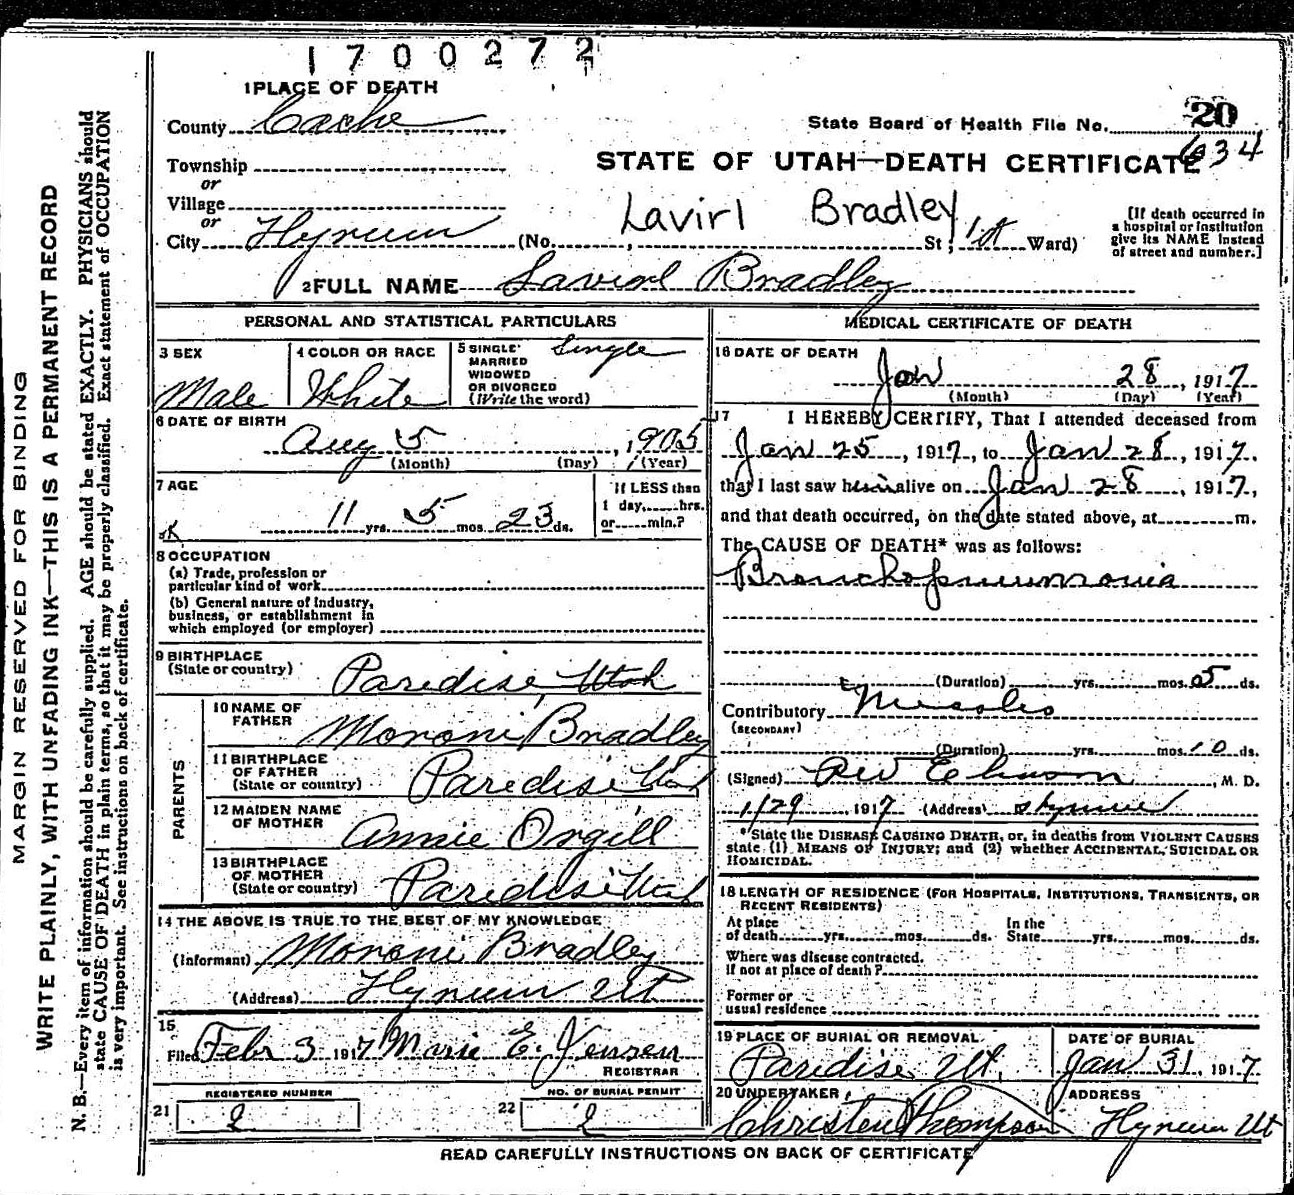 1700272
1 PLACE OF DEATH
County Cache
State Board of Health File No. 20
634
Township
or
Village
or
City Hyrum (No. , St; 1st Ward)
STATE OF UTAH—DEATH CERTIFICATE
Lavirl Bradley
[If death occurred in
a hospital or institution
give its NAME instead
of street and number.]
2 FULL NAME Lavirl Bradley
PERSONAL AND STATISTICAL PARTICULARS
3 SEX
Male
4 COLOR OR RACE
White
5 SINGLE
MARRIED
WIDOWED
OR DIVORCED
(Write the word)
Single
6 DATE OF BIRTH
Aug 5, 1905
(Month) (Day) (Year)
7 AGE
11 yrs. 5 mos. 23 ds.
If LESS than
1 day, hrs.
or min.?
8 OCCUPATION
(a) Trade, profession or
particular kind of work
(b) General nature of Industry,
business, or establishment in
which employed (or employer)
9 BIRTHPLACE
(State or country) Paredise, Utah
PARENTS
10 NAME OF
FATHER Moroni Bradley
11 BIRTHPLACE
OF FATHER
(State or country) Paredise Utah
12 MAIDEN NAME
OF MOTHER Annie Orgill
13 BIRTHPLACE
OF MOTHER
(State or country) Paredise Utah
14 THE ABOVE IS TRUE TO THE BEST OF MY KNOWLEDGE
(Informant) Moroni Bradley
(Address) Hyrum Ut
15
Filed Febr 3 1917 Marie E. Jensen
REGISTRAR
REGISTERED NUMBER
21 2
NO. OF BURIAL PERMIT
22 2
MEDICAL CERTIFICATE OF DEATH
16 DATE OF DEATH
Jan 28, 1917
(Month) (Day) (Year)
17 I HEREBY CERTIFY, That I attended deceased from
Jan 25, 1917, to Jan 28, 1917,
that I last saw him alive on Jan 28, 1917,
and that death occurred, on the date stated above, at m.
The CAUSE OF DEATH* was as follows:
Bronchopneumonia
(Duration) yrs. mos. 5 ds.
Contributory Measles
(SECONDARY)
(Duration) yrs. mos. 10 ds.
(Signed) , M. D.
1/29, 1917 (Address) Hyrum
*State the DISEASE CAUSING DEATH, or, in deaths from VIOLENT CAUSES
state (1) MEANS OF INJURY; and (2) whether ACCIDENTAL, SUICIDAL OR
HOMICIDAL.
18 LENGTH OF RESIDENCE (FOR HOSPITALS, INSTITUTIONS, TRANSIENTS, OR
RECENT RESIDENTS)
At place
of death yrs. mos. ds.
In the
State yrs. mos. ds.
Where was disease contracted.
if not at place of death?
Former or
usual residence
19 PLACE OF BURIAL OR REMOVAL
Paredise Ut.
DATE OF BURIAL
Jan 31, 1917
20 UNDERTAKER
Christen Thompson
ADDRESS
Hyrum Ut
READ CAREFULLY INSTRUCTIONS ON BACK OF CERTIFICATE
MARGIN RESERVED FOR BINDING
WRITE PLAINLY, WITH UNFADING INK—THIS IS A PERMANENT RECORD
N. B.—Every item of information should be carefully supplied. AGE should be stated EXACTLY. PHYSICIANS should
state CAUSE OF DEATH in plain terms, so that it may be properly classified. Exact statement of OCCUPATION
is very important. See instructions on back of certificate.